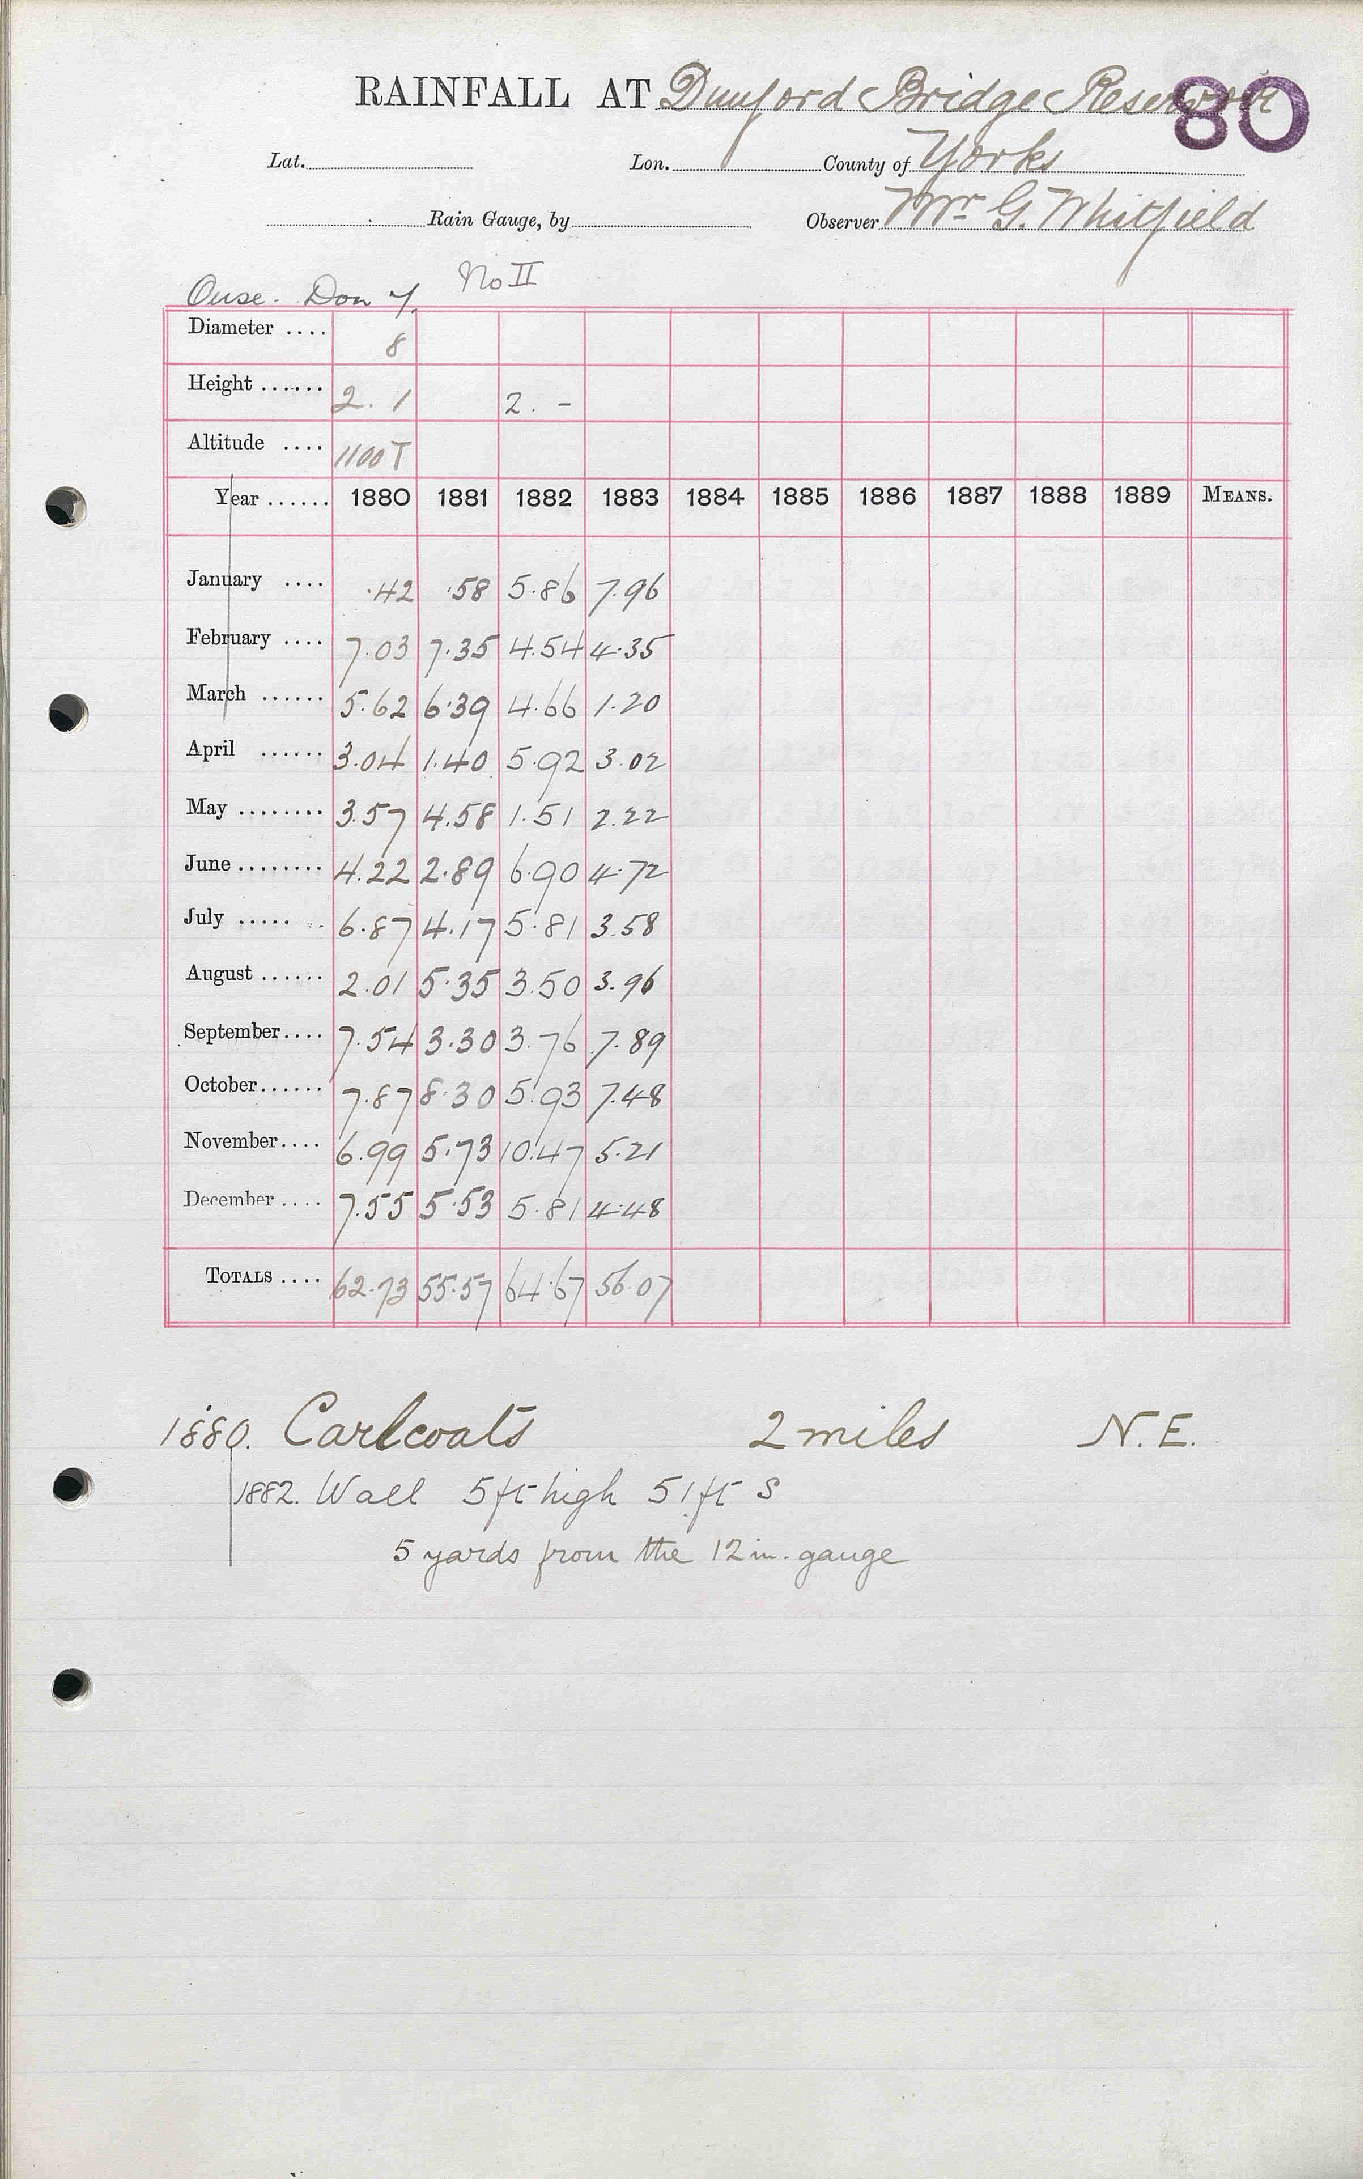 RAINFALL AT Dunford Bridge Reservoir 80
Lat. Lon. County of Yorks
Rain Gauge, by Observer Mr. G. Whitfield
Ouse. Don 7. No II
Diameter .... 8
Height ...... 2. 1 2. -
Altitude .... 1100 T
Year ...... 1880 1881 1882 1883 1884 1885 1886 1887 1888 1889 MEANS.
January .... .42 .58 5.86 7.96
February .... 7.03 7.35 4.54 4.35
March ...... 5.62 6.39 4.66 1.20
April ...... 3.04 1.40 5.92 3.02
May ........ 3.57 4.58 1.51 2.22
June ........ 4.22 2.89 6.90 4.72
July ..... 6.87 4.17 5.81 3.58
August ...... 2.01 5.35 3.50 3.96
September.... 7.54 3.30 3.76 7.89
October...... 7.87 8.30 5.93 7.48
November.... 6.99 5.73 10.47 5.21
December .... 7.55 5.53 5.81 4.48
TOTALS .... 62.73 55.57 64.67 56.07
1880. Carlcoats 2 miles N.E.
1882. Wall 5 ft high 51 ft S
5 yards from the 12 in. gauge